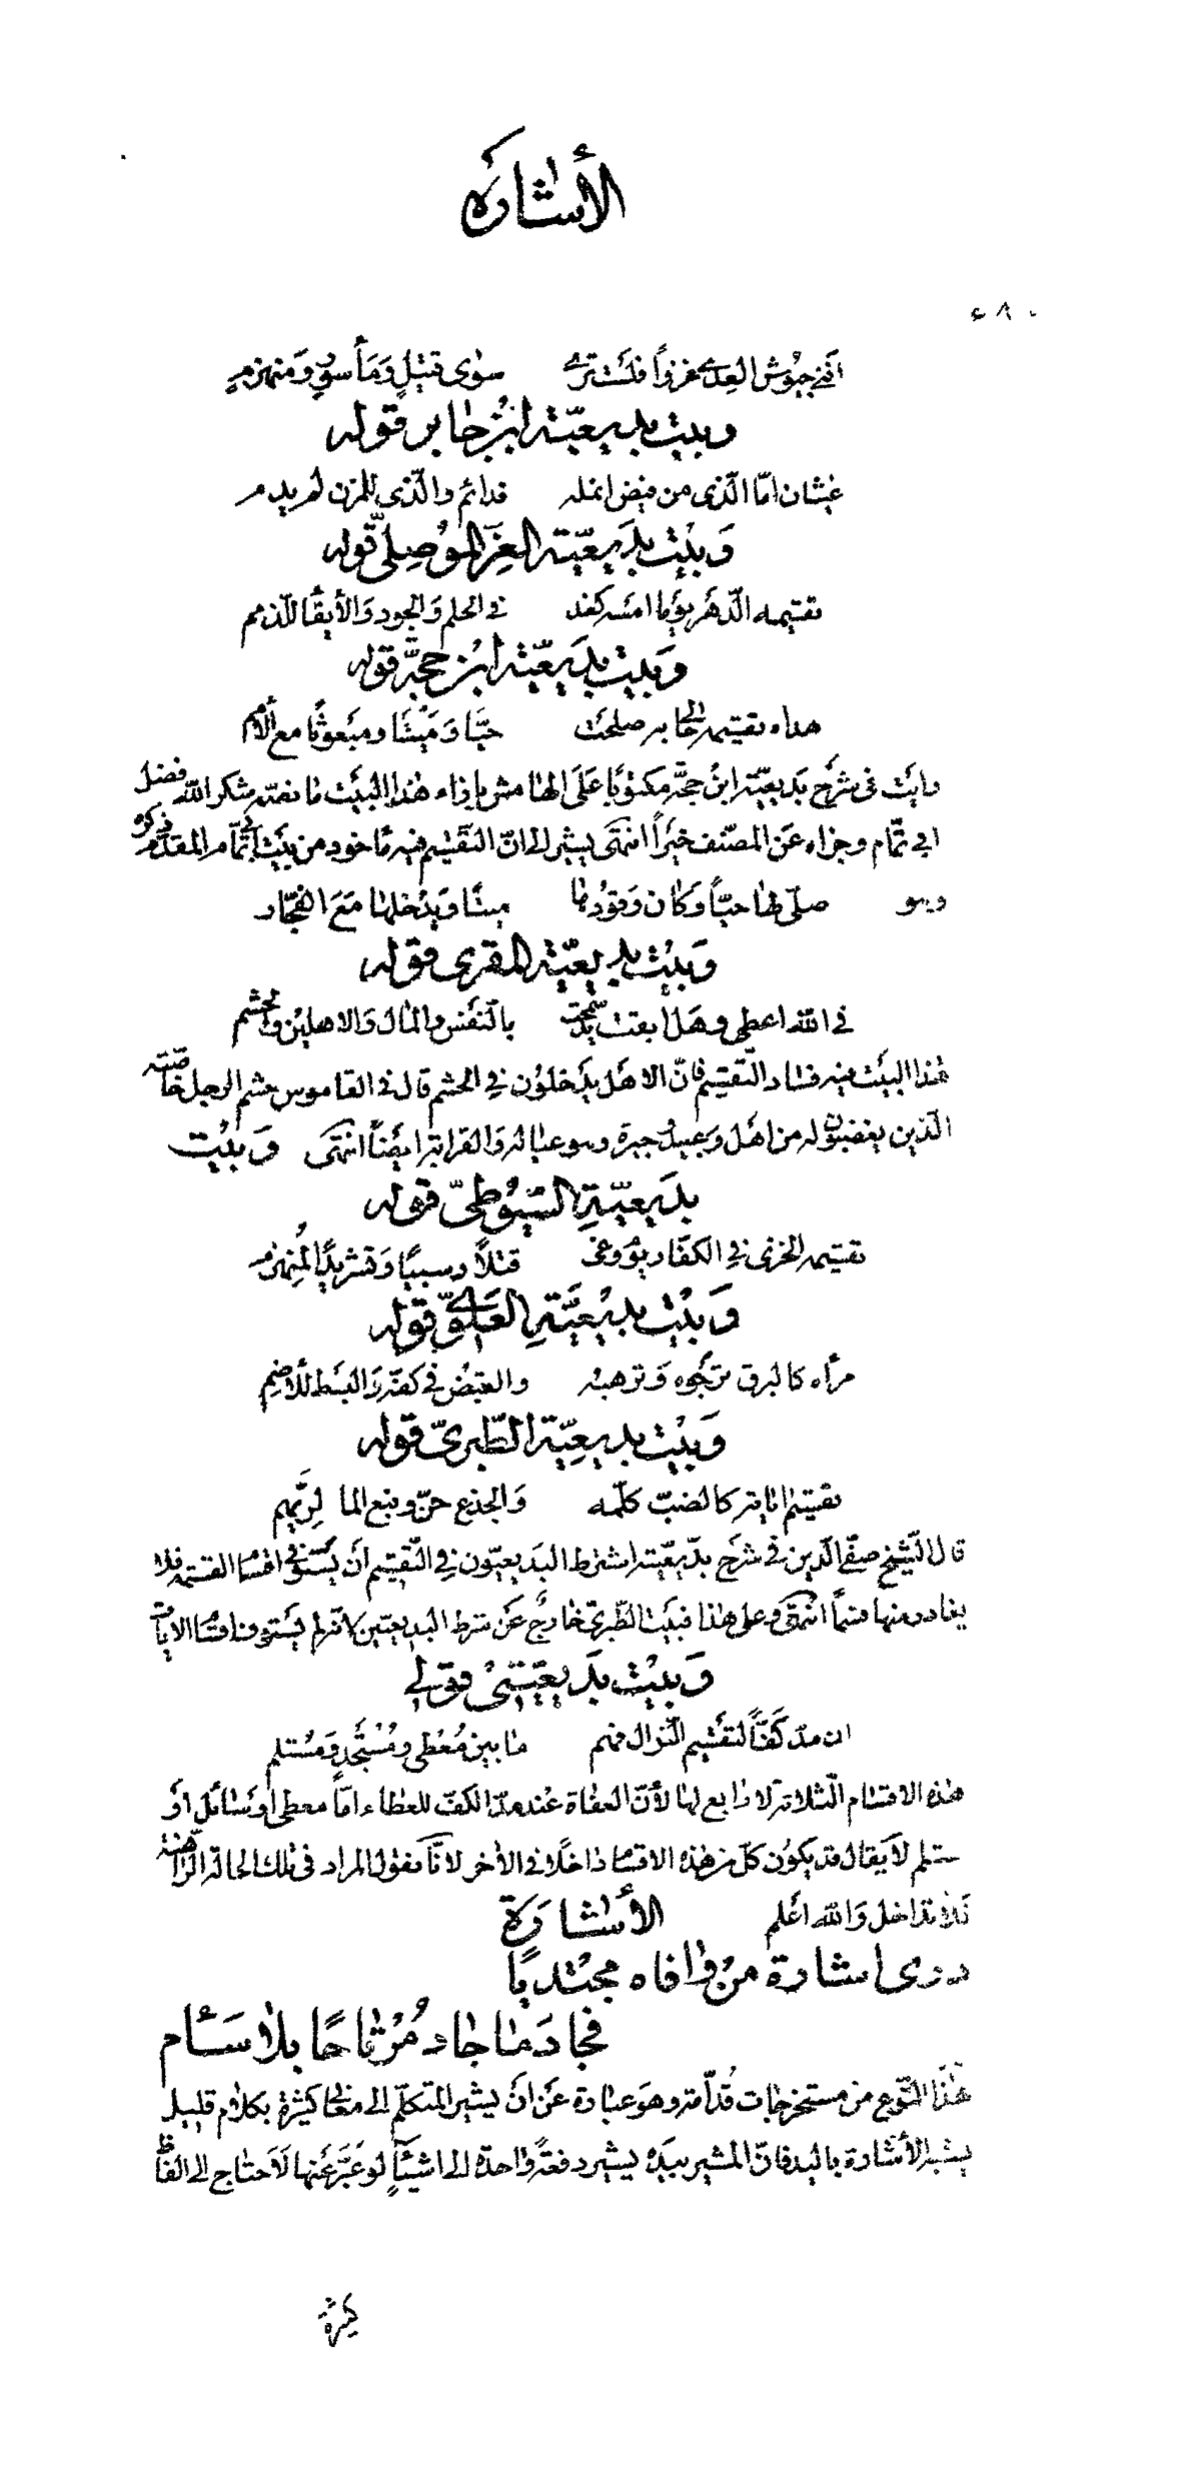 الأشارة
٤٨٠
افنى جيوش العدى غزوا فلست ترى سوى قتيل ومأسور ومنهزم
وبيت بديعيّة ابن جابر قوله
غيثان امّا الّذى من فيض انمله فدائم والّذى للمزن لم يدم
وبيت بديعيّة العزّ الموصلىّ قوله
تقسيمه الدّهر يوما امسه كغد فى الحلم والجود والأيفا للذمم
وبيت بديعيّة ابن حجّة قوله
هداه تقسيمه حالى به صلحت حيّا وميّتا ومبعوثا مع الأمم
رايت فى شرح بديعيّة ابن حجّة مكتوبا على الهامش بازاء هذا البيت ما نصّه شكر الله فضل
ابى تمّام وجزاه عن المصنّف خيرا انتهى يشير الى انّ التّقسيم فيه مأخوذ من بيت ابى تمّام المقدّم ذكره
وهو صلّى لها حيّا وكان وقودها ميتا ويدخلها مع الفجّار
وبيت بديعيّة المقرى قوله
فى الله اعطى وهل ابقت يد سمحت بالنّفس والمال والاهلين والحشم
هذا البيت فيه فساد التّقسيم فانّ الاهل يدخلون فى الحشم قال فى القاموس حشم الرجل خاصّته
الّذين يغضبون له من اهل وعبيد وجيرة وهو عياله والقرابة ايضا انتهى وبيت
بديعيّة السّيوطىّ قوله
تقسيمه الخزى فى الكفّار يوم وغى قتلا وسبيا وتشريدا لمنهزم
وبيت بديعيّة العلوىّ قوله
مرآه كالبرق ترجوه وترهبه والقبض فى كفّه والبسط للأضم
وبيت بديعيّة الطّبرىّ قوله
تقسيم اياته كالضبّ كلّمه والجذع حنّ ونبع الما لريّهم
قال الشّيخ صفىّ الدّين فى شرح بديعيّته اشترط البديعيّون فى التّقسيم أن يستوفى اقسام القسمة فلا
يغادر منها قسما انتهى وعلى هذا فبيت الطّبرىّ خارج عن شرط البديعيّين لانّه لم يستوف اقسام الايات
وبيت بديعيّتى قولى
ان مدّ كفّا لتقسيم النّوال فهم ما بين معطى ومستجد ومستلم
هذه الاقسام الثّلاثة لا رابع لها لأنّ العفاة عند مدّ الكفّ للعطاء امّا معطى او سائل او
مستلم لا يقال قد يكون كلّ من هذه الاقسام داخلا فى الأخر لانّا نقول المراد فى تلك الحالة الرّاهنة
فلا تداخل والله اعلم الأشارة
درى اشارة من وافاه مجتديا
فجاد ما جاد مرتاحا بلا سأم
هذا النّوع من مستخرجات قدامة وهو عبارة عن ان يشير المتكلّم الى معانى كثيرة بكلام قليل
يشبه الأشارة باليد فانّ المشير بيده يشير دفعة واحدة الى اشيأ لو عبّر عنها لاحتاج الى الفاظ
كثيرة